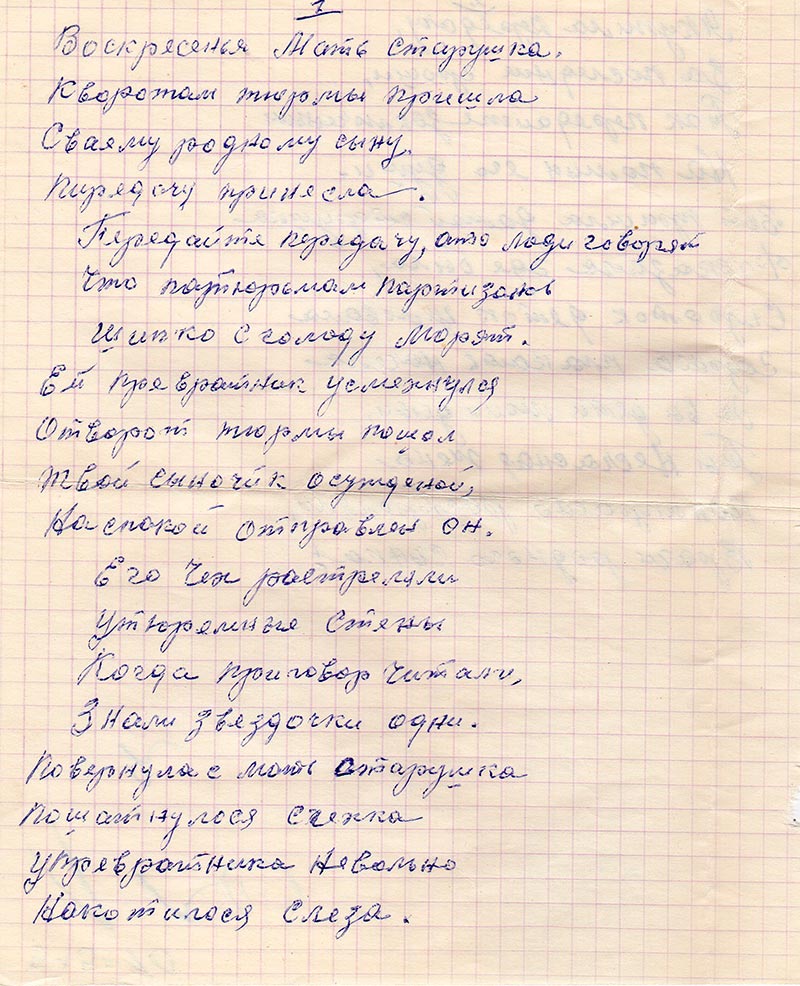 1
Воскресенья Мать старушка.
Кворотам тюрмы пришла
Сваему родному сыну.
Пиредачу принесла.
Передайте передачу, ато люди говорят
Что патюрьмам партизанов
Шипко с голоду морят.
Ей превратник усмехнулся
Отворот тюрмы пошол
Твой сыночик осужденой,
На спокой отправлен он.
Его Чех растреляли
Утюремные стены
Когда приговор читали,
Знали звездочки одни.
Повернулас мать старушка
Пошатнулося слехка
Упревратника невольно
Накотилося слеза.